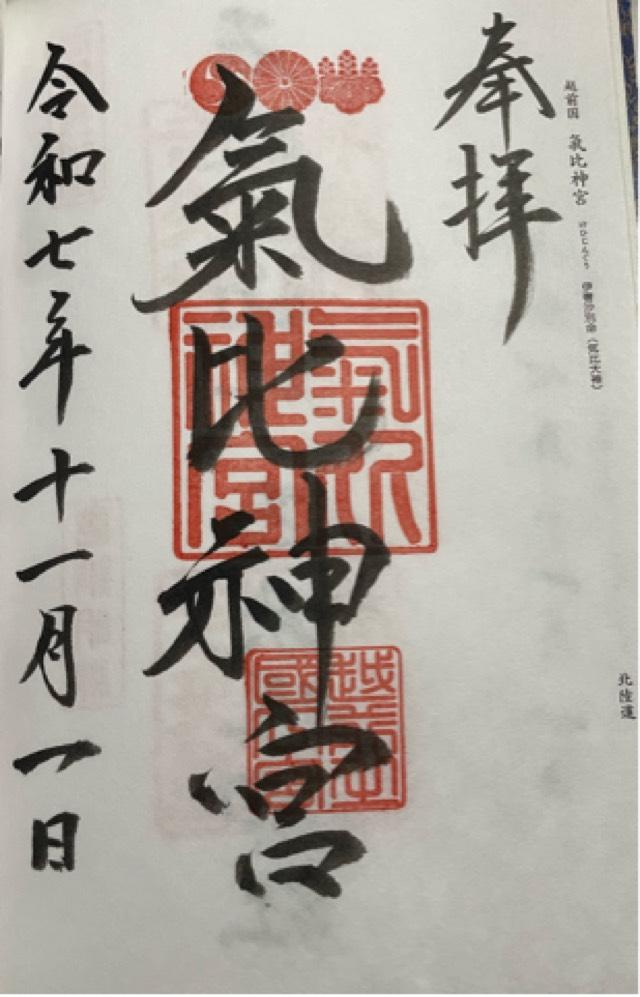 越前国 氣比神宮 けひじんぐう 伊奢沙別命(気比大神)
北陸道
奉拝
氣比神宮
氣比
神宮
令和七年十一月一日